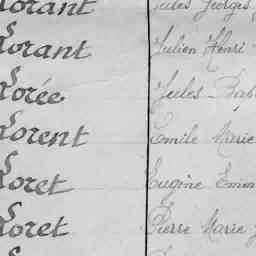 Lorant Jules Georges
Lorant Julien Henri
Lorée Jules
Lorent Emile Marie
Loret Eugène
Loret Pierre Marie